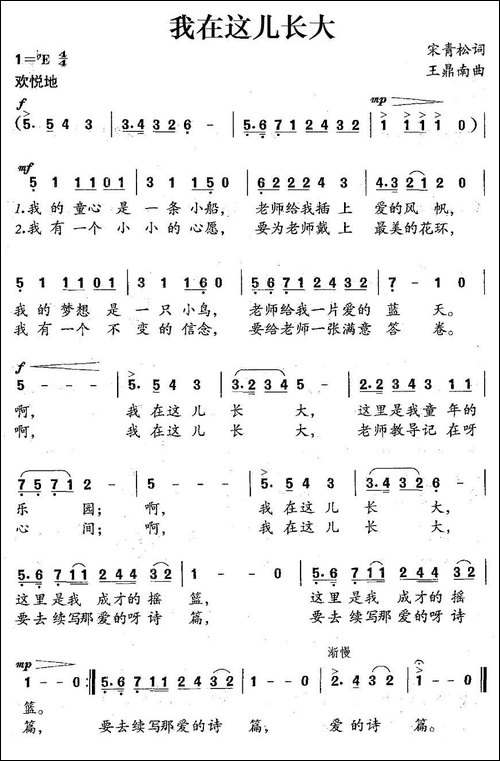 我在这儿长大
1=♭E 4/4
宋青松词
欢悦地
王鼎南曲
f mp
(5. 5 4 3 | 3.4 3 2 6 - | 5.6 7 1 2 4 3 2 | 1 1 1 1 0) |
mf
5 1 1 1 0 1 | 3 1 1 5 0 | 6 2 2 2 4 3 | 4.3 2 1 2 0 |
1.我的童心是一条小船，老师给我插上爱的风帆，
2.我有一个小小的心愿，要为老师戴上最美的花环，
5 1 1 1 0 1 | 3 1 1 6 0 | 5 6 7 1 2 4 3 2 | 7 - 1 0 |
我的梦想是一只小鸟，老师给我一片爱的蓝天。
我有一个不变的信念，要给老师一张满意答卷。
f
5 - - - | 5. 5 4 3 | 3.2 3 4 5 - | 2.2 3 4 3 1 1 |
啊，我在这儿长大，这里是我童年的
啊，我在这儿长大，老师教导记在呀
7 5 7 1 2 - | 5 - - - | 5. 5 4 3 | 3.4 3 2 6 - |
乐园；啊，我在这儿长大，
心间；啊，我在这儿长大，
5.6 7 1 1 2 4 4 3 2 | 1 - - 0 | 5.6 7 1 1 2 4 4 3 2 |
这里是我成才的摇篮，这里是我成才的摇
要去续写那爱的呀诗篇，要去续写那爱的呀诗
mp 渐慢
1 - - 0 :‖ 5.6 7 1 1 2 4 3 2 | 1 - - 0 | 2. 4 3 2 | 1 - - 0 ‖
篮。
篇，要去续写那爱的诗篇，爱的诗篇。